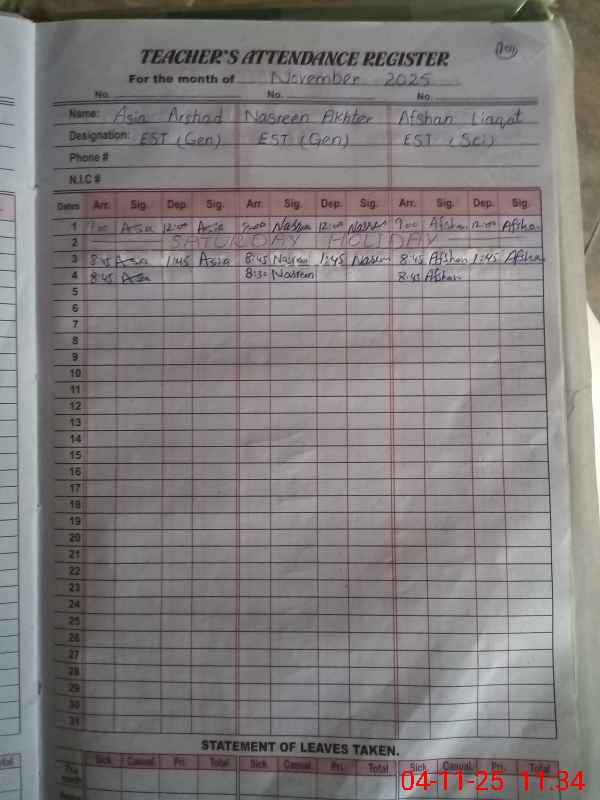 TEACHER'S ATTENDANCE REGISTER
For the month of November 2025
No. No. No.
Name: Asia Arshad Nasreen Akhter Afshan Liaqat
Designation: EST (Gen) EST (Gen) EST (Sci)
Phone #
N.I.C #
Dates Arr. Sig. Dep. Sig. Arr. Sig. Dep. Sig. Arr. Sig. Dep. Sig.
1 9:00 Asia 12:00 Asia 9:00 Nasreen 12:00 Nasreen 9:00 Afshan 12:00 Afshan
2 SATURDAY HOLIDAY
3 8:45 Asia 1:45 Asia 8:45 Nasreen 1:45 Nasreen 8:45 Afshan 1:45 Afshan
4 8:45 Asia 8:30 Nasreen 8:45 Afshan
5
6
7
8
9
10
11
12
13
14
15
16
17
18
19
20
21
22
23
24
25
26
27
28
29
30
31
STATEMENT OF LEAVES TAKEN.
Sick Casual. Pri. Total Sick. Casual. Pri. Total Sick. Casual. Pri. Total
This month
04-11-25 11:34